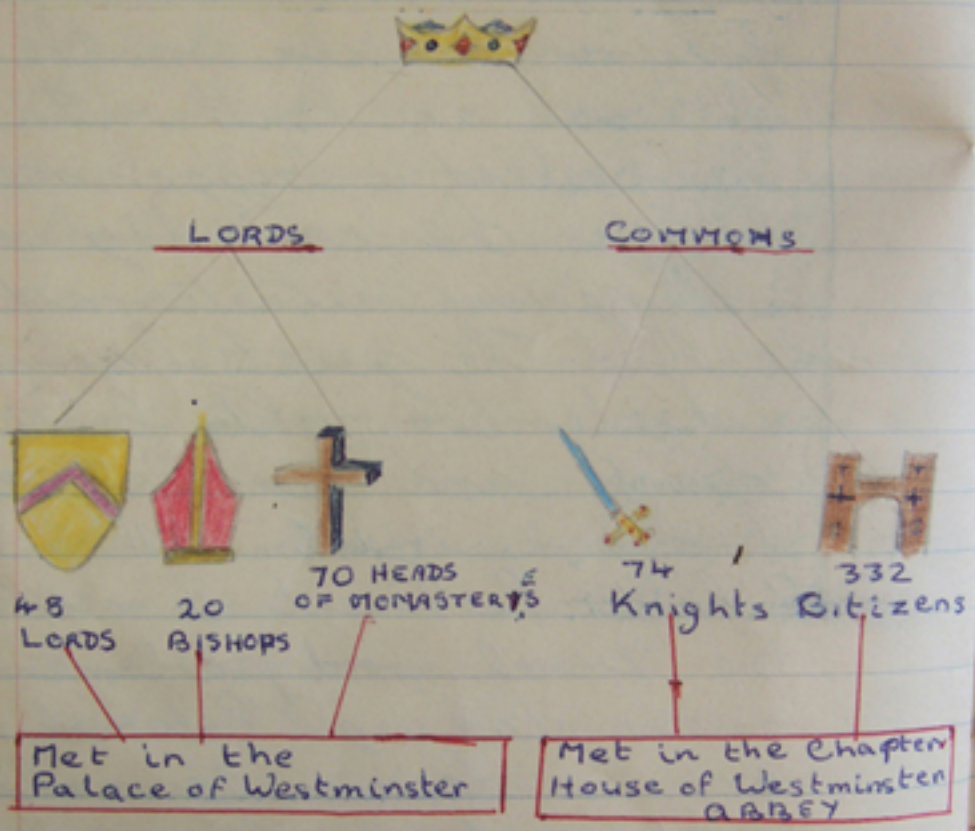 LORDS
COMMONS
48
LORDS
20
BISHOPS
70 HEADS
OF MONASTERYES
74
Knights
332
Citizens
Met in the
Palace of Westminster
Met in the Chapter
House of Westminster
ABBEY